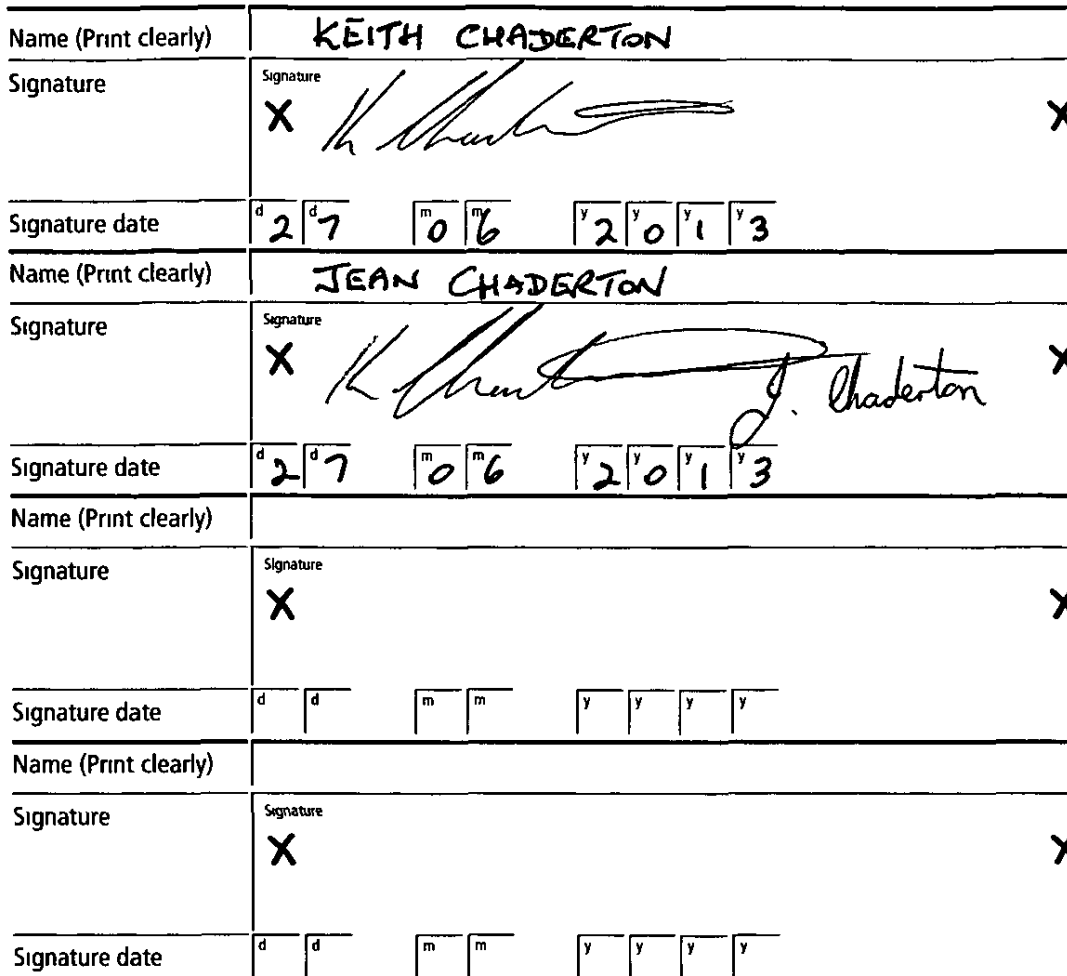 Name (Print clearly) KEITH CHADERTON
Signature Signature
X K Chad X
Signature date d 2 d 7 m 0 m 6 y 2 y 0 y 1 y 3
Name (Print clearly) JEAN CHADERTON
Signature Signature
X K Chad J. Chaderton X
Signature date d 2 d 7 m 0 m 6 y 2 y 0 y 1 y 3
Name (Print clearly)
Signature Signature
X X
Signature date d d m m y y y y
Name (Print clearly)
Signature Signature
X X
Signature date d d m m y y y y